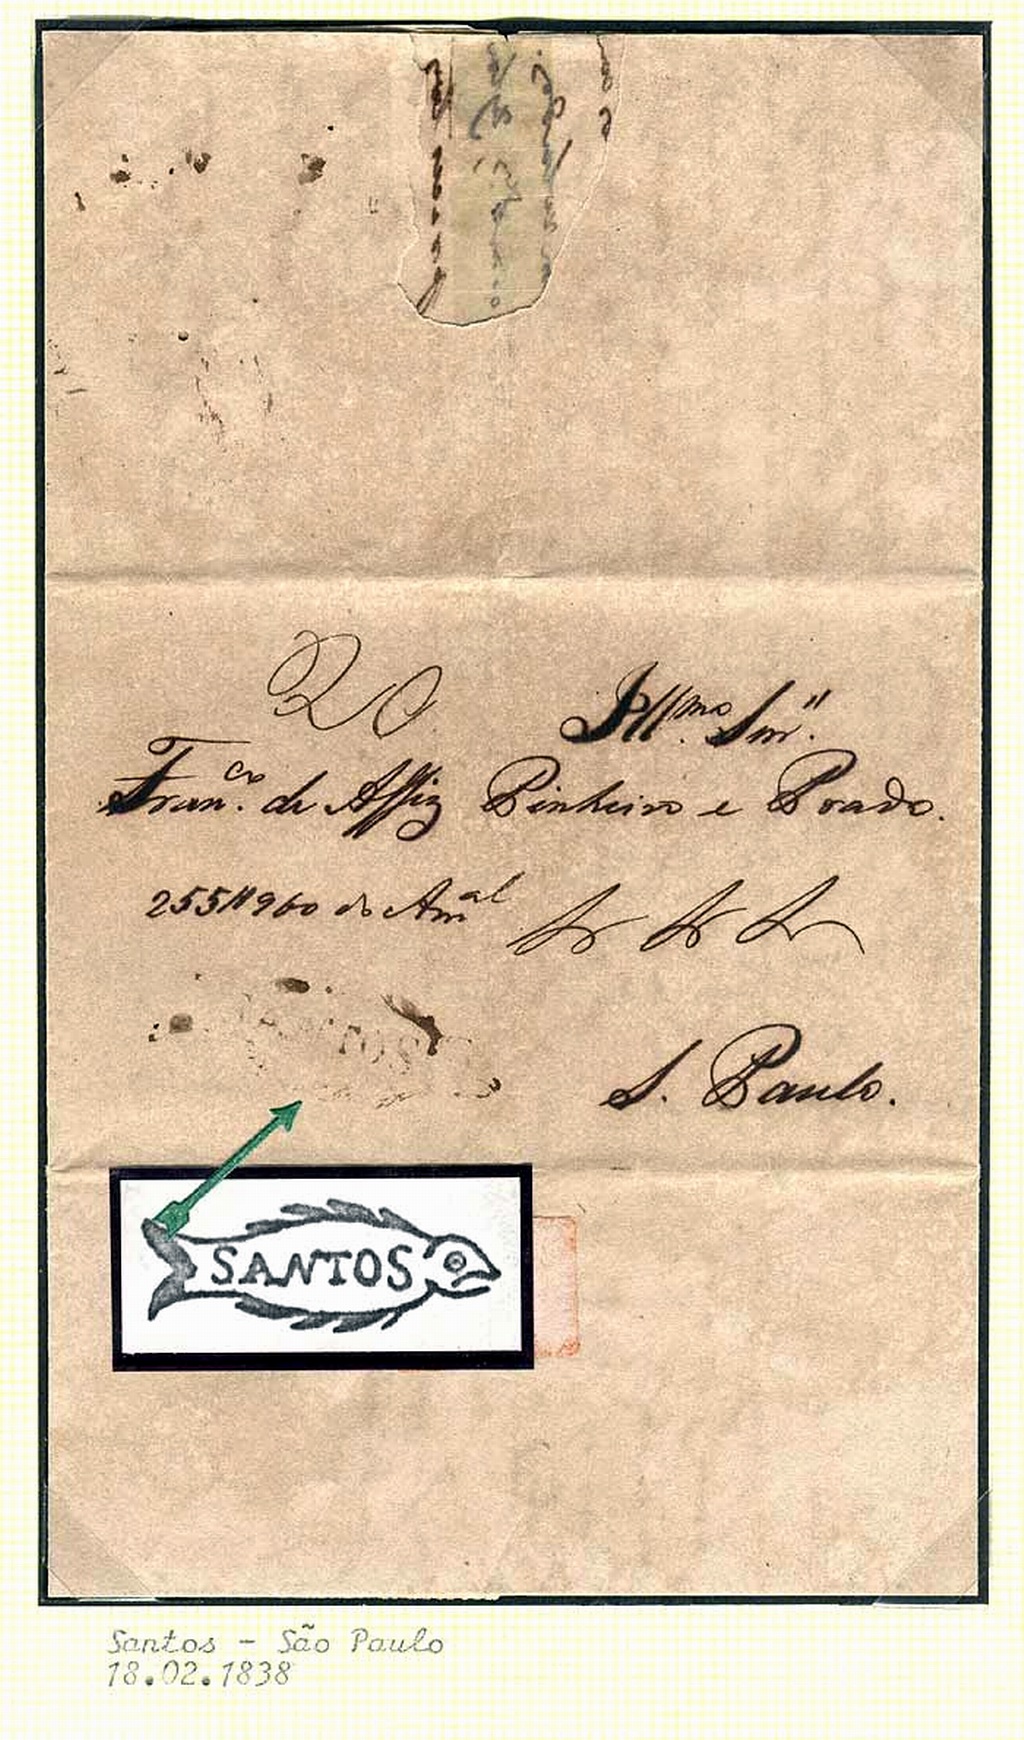 20
Ill.mo Snr."
Fran.co de Assiz Pinheiro e Prado.
255#960 do Am.al
S. Paulo.
SANTOS
Santos - São Paulo
18.02.1838